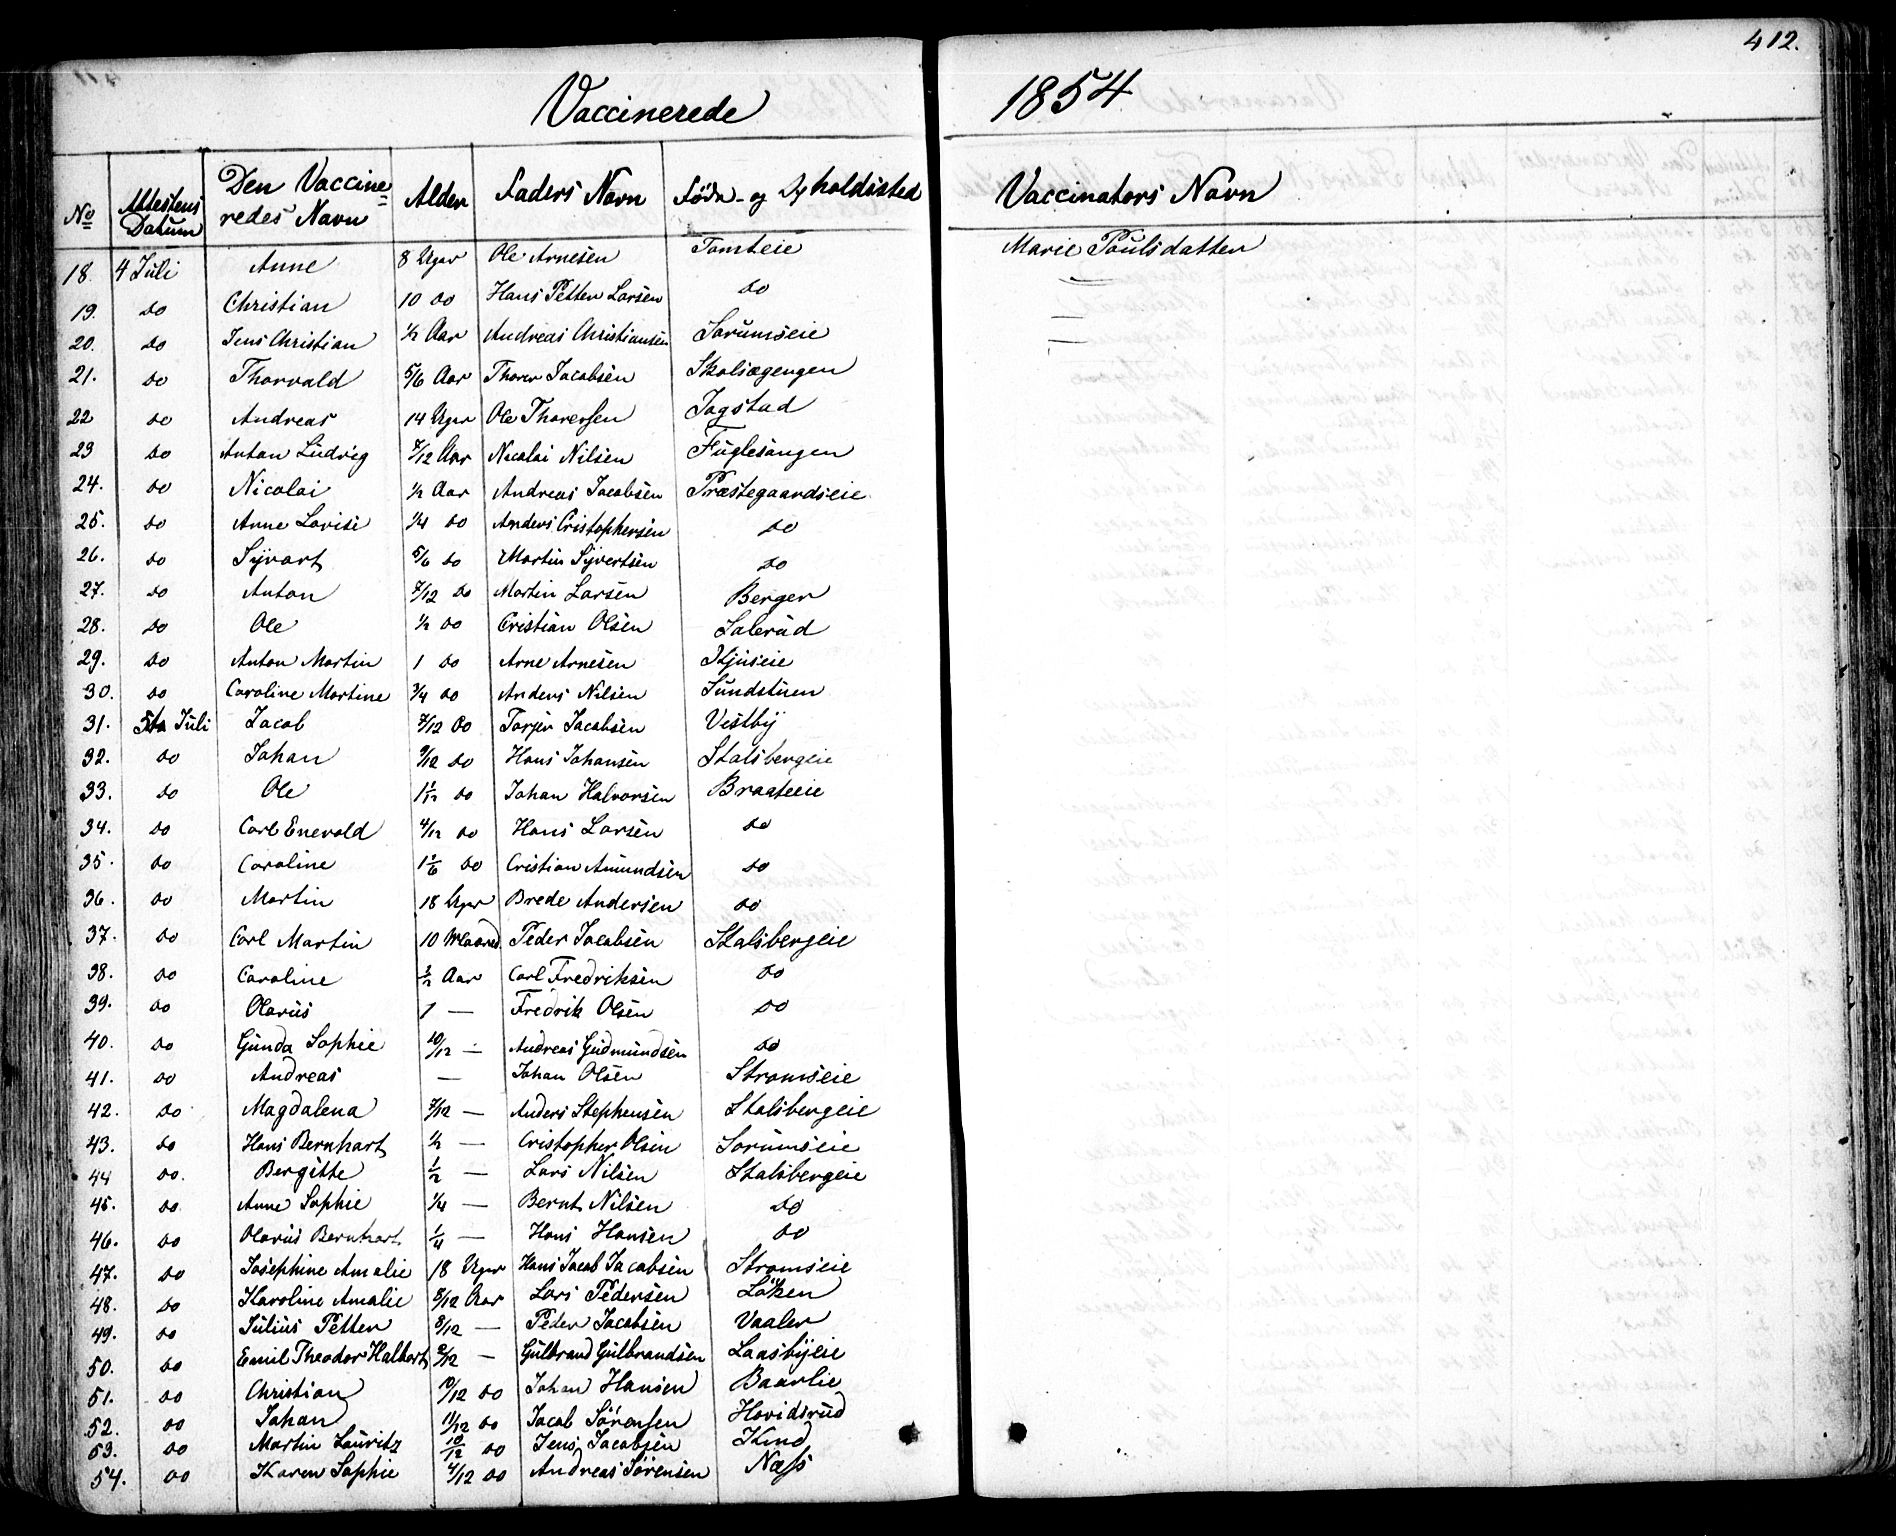 412.
Vaccinerede 1854
No Attestens Datum Den Vaccineredes Navn Alder Faders Navn Føde- og Opholdssted Vaccinators Navn
18. 4 Juli Anne 8 Uger Ole Arnesen Tomteie Marie Poulsdatter
19. do Christian 10 do Hans Petter Larsen do —
20. do Jens Christian 1/2 Aar Andreas Christiansen Sorumseie —
21. do Thorvald 5/6 Aar Thorer Jacobsen Skolsægengen
22 do Andreas 14 Uger Ole Thoresen Jogstad
23 do Anton Ludvig 7/12 Aar Nicolai Nilsen Fuglesangen
24. do Nicolai 1/2 Aar Andreas Jacobsen Præstegaardseie
25. do Anne Lovise 1/4 do Anders Cristophersen do
26. do Syvart 5/6 do Martin Syvertsen do
27. do Anton 7/12 do Martin Larsen Berger
28. do Ole 1/2 do Cristian Olsen Salerud
29. do Anton Martin 1 do Arne Arnesen Kjuseie
30. do Caroline Martine 3/4 do Anders Nilsen Sundstuen
31. 5te Juli Jacob 7/12 do Torjer Jacobsen Vestby
32. do Johan 9/12 do Hans Johansen Stalsbergeie
33. do Ole 1 1/12 do Johan Halvorsen Braateeie
34. do Carl Enevold 4/12 do Hans Larsen do
35. do Caroline 1 1/6 do Cristian Amundsen do
36. do Martin 18 Uger Brede Andersen do
37. do Carl Martin 10 Maaned Peder Jacobsen Stalsbergeie
38. do Caroline 1/2 Aar Carl Fredriksen do
39. do Olavus 1 — Fredrik Olsen do
40. do Gunda Sophie 10/12 — Andreas Gudmundsen do
41. do Andreas — Johan Olsen Stromseie
42. do Magdalena 7/12 — Anders Stephensen Stalsbergeie
43. do Hans Bernhart 1/2 — Cristopher Olsen Sorumseie
44 do. Bergitte 1/2 — Lars Nilsen Stalsbergeie
45. do Anne Sophie 1/4 — Bernt Nilsen do
46. do Olavus Bernhart 1/4 — Hans Hansen do
47. do Josephine Amalie 18 Uger Hans Jacob Jacobsen Stromseie
48. do Karoline Amalie 8/12 Aar Lars Pedersen Løken
49. do Julius Petter 8/12 — Peder Jacobsen Vaaler
50. do Emil Theodor Halbort 2/12 — Gulbrand Gulbrandsen Laasbyeie
51. do Christian 10/12 do Johan Hansen Baarlie
52. do Johan 11/12 do Jacob Sørensen Hovidsrud
53. do Martin Lauritz 10/12 do Jens Jacobsen Kind
54. do Karen Sophie 4/12 do Andreas Sørensen Næss